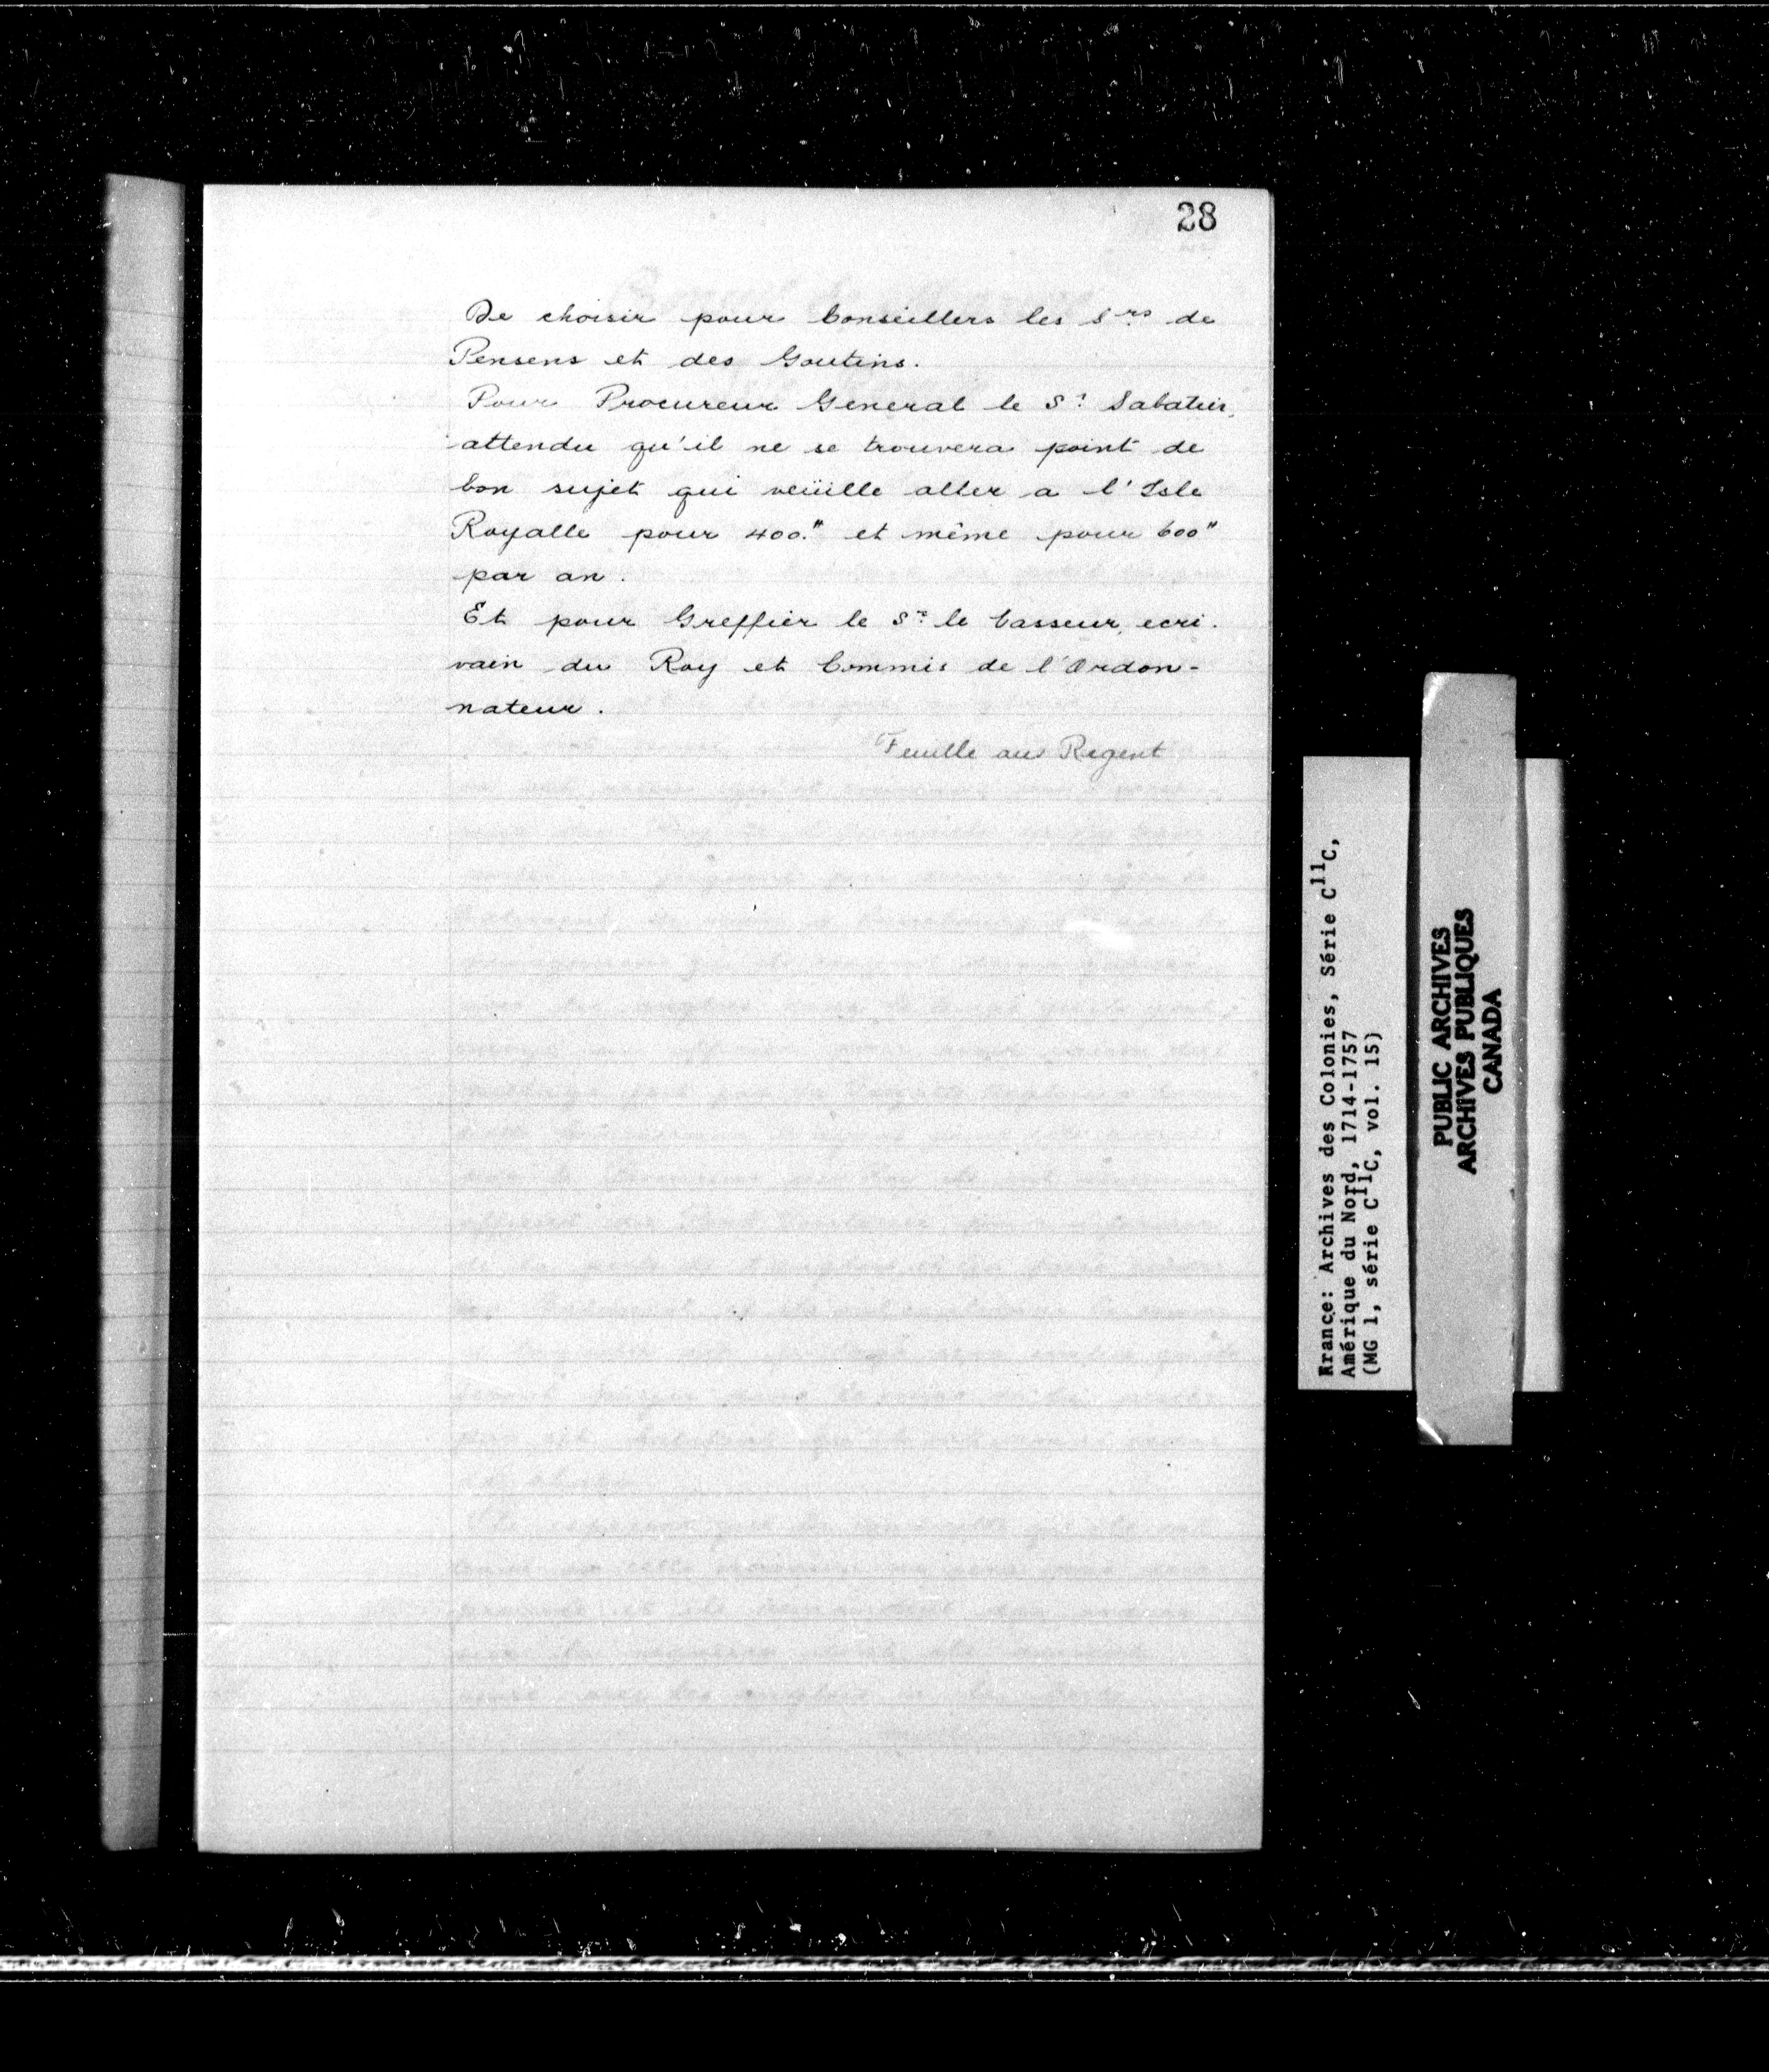 28
De choisir pour Conseillers les S.rs de
Pensens et des Goutins.
Pour Procureur General le S.r Sabatier,
attendu qu'il ne se trouvera point de
bon sujet qui veüille aller a l'Isle
Royalle pour 400.# et même pour 600#
par an.
Et pour Greffier le S.r le Vasseur, ecri-
vain du Roy et Commis de l'Ordon-
nateur.
Feuille au Regent
Rrance: Archives des Colonies, Série C11C,
Amérique du Nord, 1714-1757
(MG 1, série C11C, vol. 15)
PUBLIC ARCHIVES
ARCHIVES PUBLIQUES
CANADA